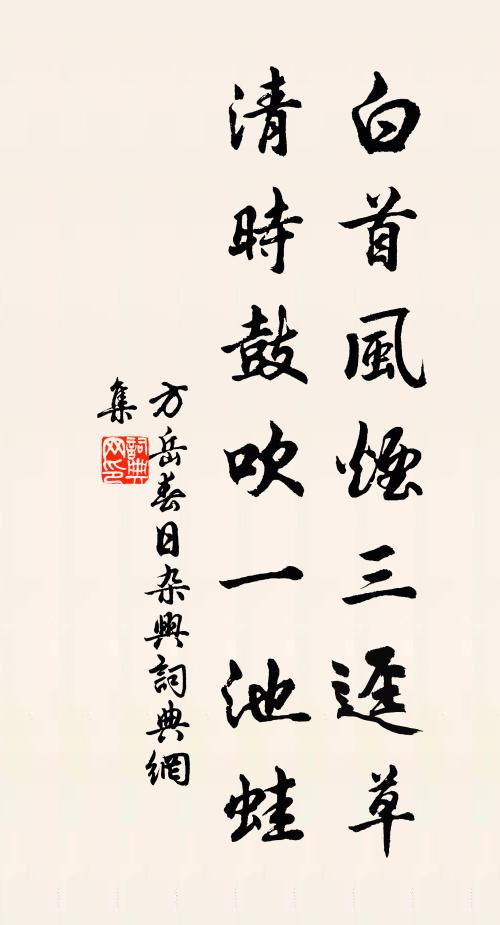 白首風煙三逕草
清時鼓吹一池蛙
方岳春日杂興詞典網
集
詞典
网印